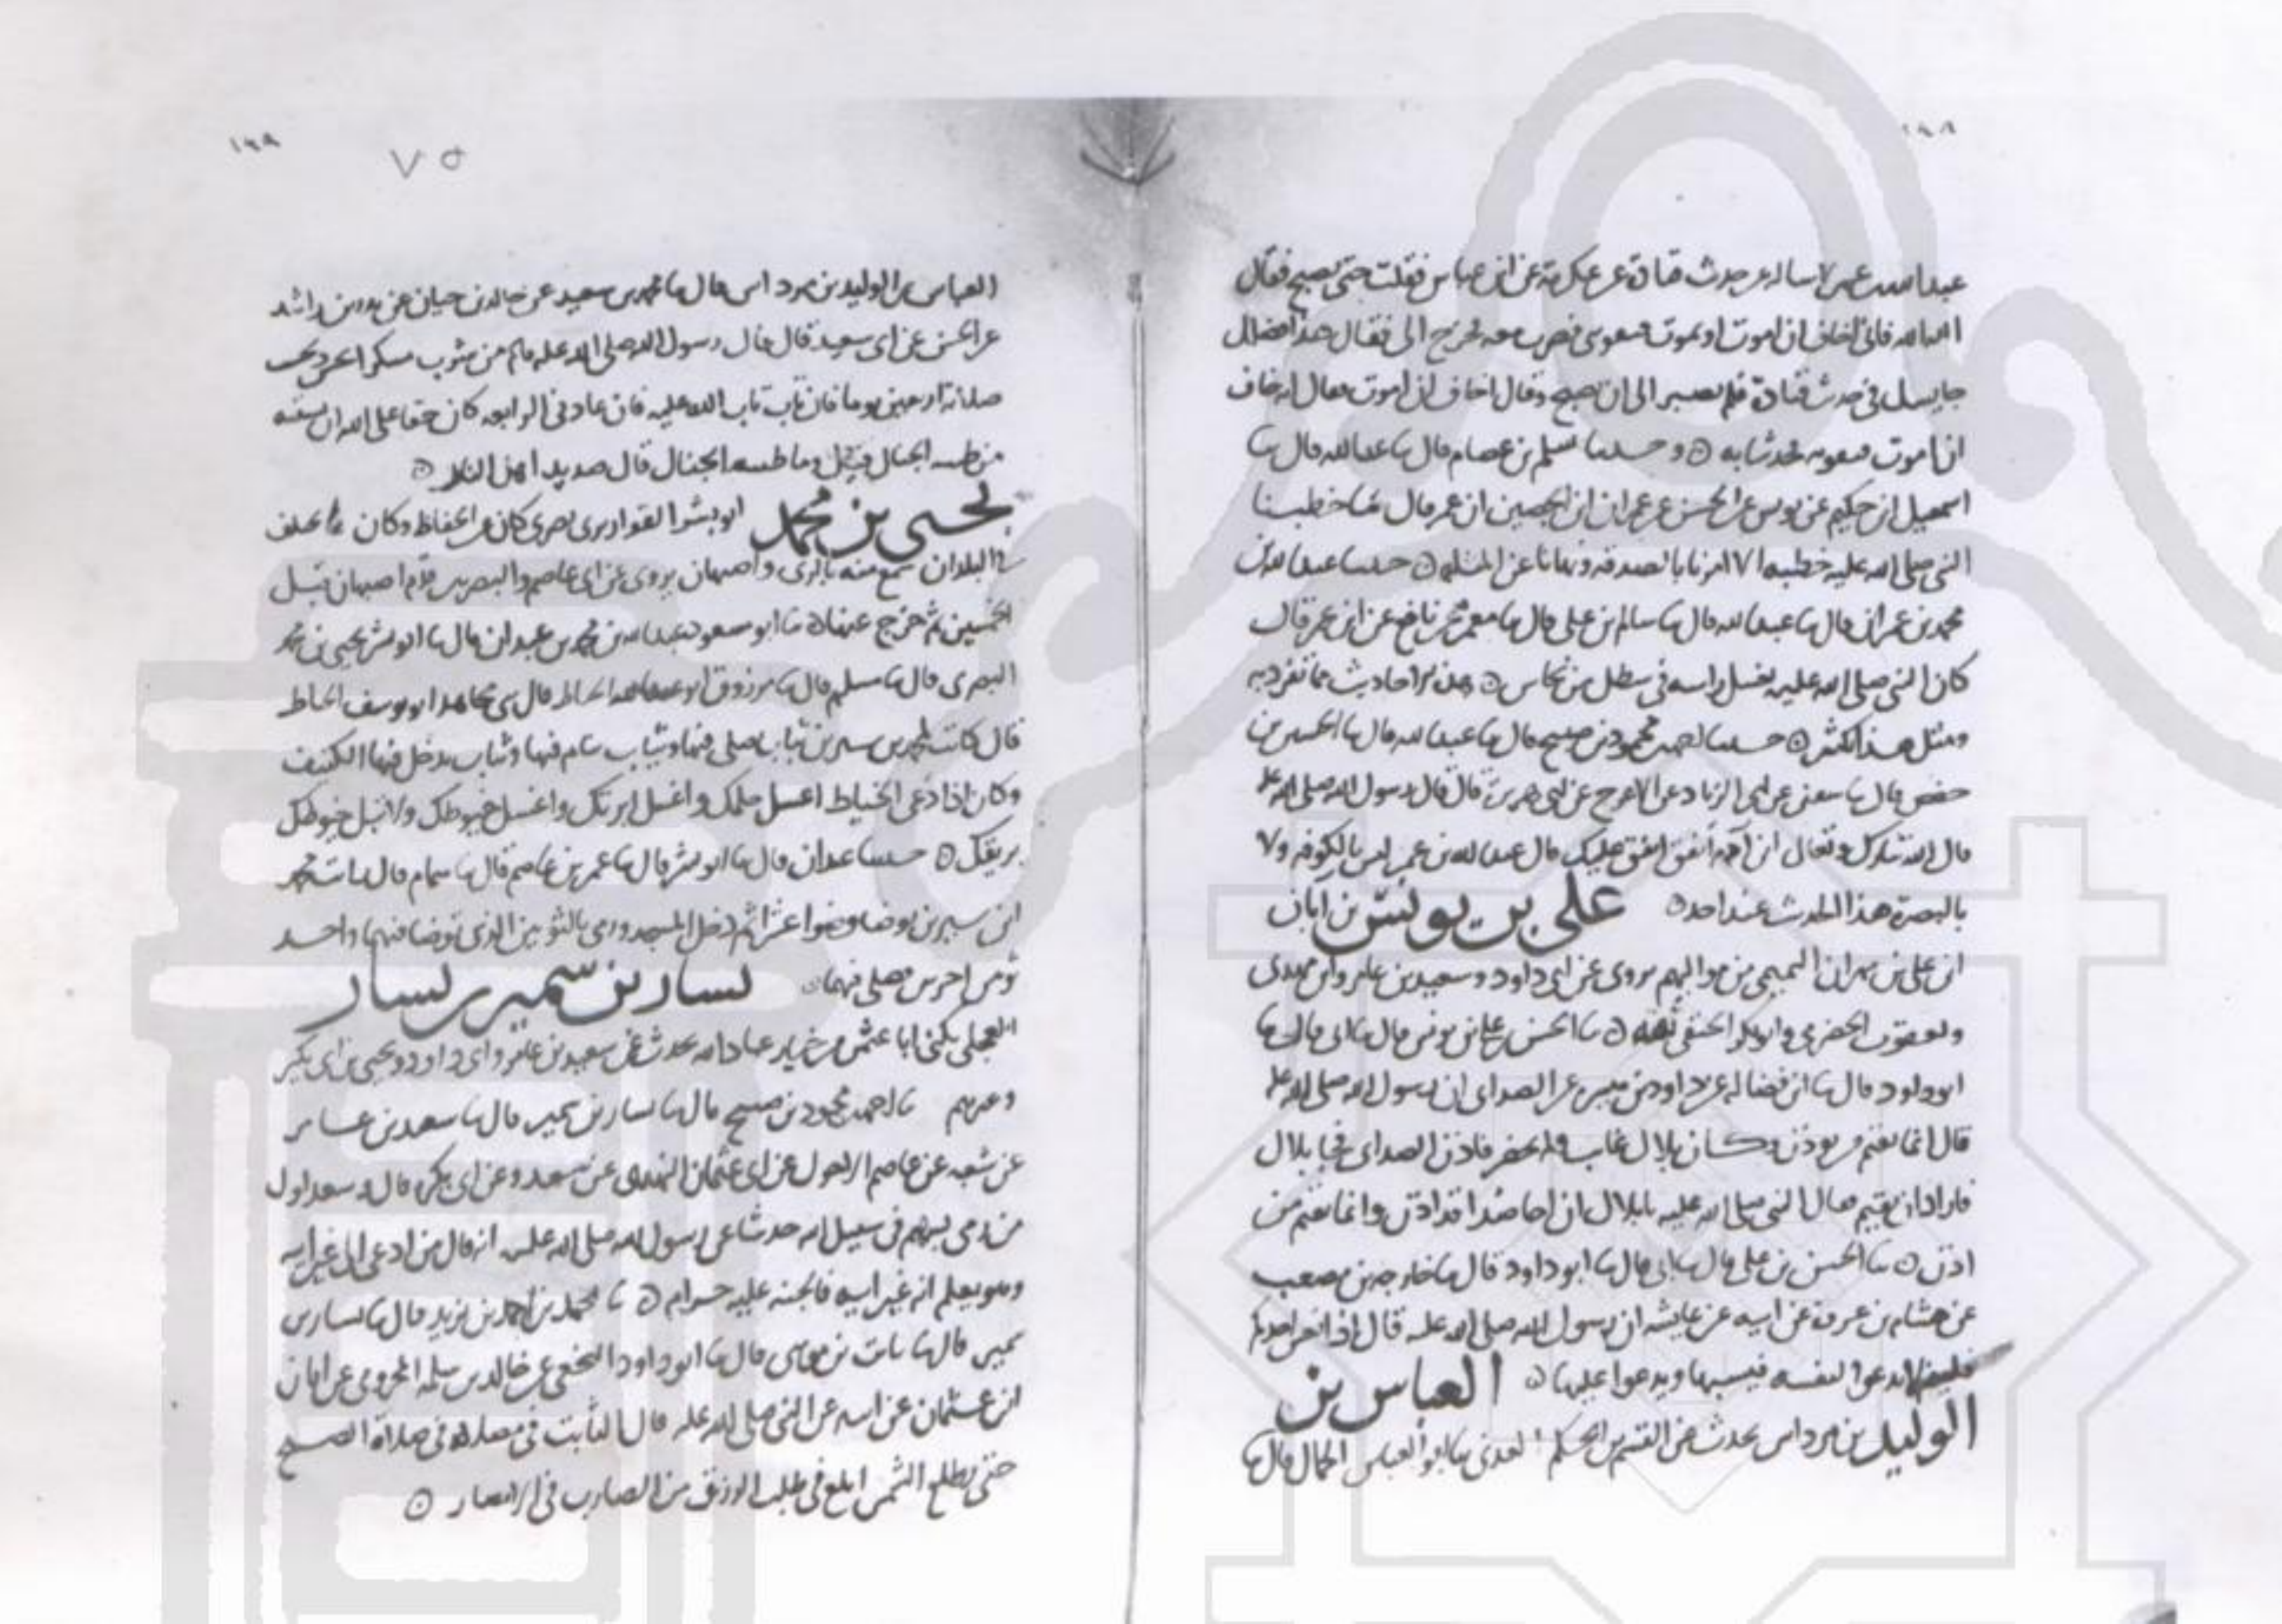 ١٩٨
عبدالله بن عمر اساله عن حدث قتادة عن عكرمة عن ابن عباس فقلت حتى تصبح فقال
الله الله فاني اخاف ان اموت او تموت فضرب معه فخرج الى فقال هذا فضلك
جا يسل في حدث قتادة فلم يصبر الى ان اصبح وقال اخاف ان اموت فقال اخاف
ان اموت فحدثنا به ۞ وحدثنا مسلم بن عصام قال ثنا عبدالله قال ثنا
اسمعيل ابن حكيم عن يونس عن الحسن عن عمران ابن الحصين ان عمر قال ما خطبنا
النبي صلى الله عليه خطبه الا امرنا بالصدقه ونهانا عن المثله ۞ حدثنا عبدالله بن
محمد بن عمران قال ثنا عبدالله قال ثنا سالم بن علي قال ثنا معمر عن نافع عن ابن عمر قال
كان النبي صلى الله عليه يغسل راسه في سطل من نحاس ۞ هذه احاديث مما تفرد به
ومثل هذا كثير ۞ حدثنا احمد بن محمود بن صبيح قال ثنا عبدالله قال ثنا الحسين بن
حفص قال ثنا سفين عن ابي الزناد عن الاعرج عن ابي هريرة قال قال رسول الله صلى الله عليه
قال الله تبارك وتعالى ابن آدم انفق انفق عليك قال عبدالله بن عمر ليس بالكوفه ولا
بالبصرة هذا الحدث عند احد ۞ علي بن يونس بن ابان
ابن علي بن مهران التميمي من مواليهم يروي عن ابي داود وسعيد بن عامر وابن مهدي
ويعقوب الحضرمي وابو بكر الحنفي ثقه ۞ ثنا الحسن بن علي بن يونس قال ثنا ابي قال ثنا
ابوداود قال ثنا ابن فضاله عن داود بن عن الصداي ان رسول الله صلى الله عليه
قال انما يقيم من يوذن وكان بلال غايب فلم يحضر فاذن الصداي فجا بلال
فاراد ان يقيم فقال النبي صلى الله عليه يا بلال ان اخا صدا قد اذن وانما يقيم من
اذن ۞ ثنا الحسن بن علي قال ثنا ابي قال ثنا ابو داود قال ثنا خارجه بن مصعب
عن هشام بن عروة عن ابيه عن عايشه ان رسول الله صلى الله عليه قال اذا نعس احدكم
يدعوا لنفسه فيسبها ويدعوا عليها ۞ العباس بن
الوليد بن مرداس يحدث عن القسم بن الحكم العدني ثنا ابو العباس الجمال قال ثنا
١٩٩
٧٥
العباس بن الوليد بن مرداس قال ثنا محمد بن سعيد عن خالد بن حيان عن بدر بن راشد
عن الحسن عن ابي سعيد قال قال رسول الله صلى الله عليه من شرب مسكرا
صلاته اربعين يوما فان تاب تاب الله عليه فان عاد في الرابعه كان حقا على الله ان يسقيه
من طينه الخبال فقيل وما طينه الخبال قال صديد اهل النار ۞
يحيى بن محمد ابو بشر القواريري بصري كان من الحفاظ وكان
البلدان سمع منه بالري واصبهان يروي عن ابي عاصم والبصريين قدم اصبهان قبل
الخمسين ثم خرج عنها ۞ ثنا ابو مسعود عبدالله بن محمد بن عبدان قال ثنا ابو بشر يحيى بن محمد
البصري قال ثنا مسلم قال ثنا مرزوق ابو عبدالله الخياط قال ثنى مجاهد ابو يوسف الخياط
قال كانت لمحمد بن سيرين ثياب يصلي فيها وثياب ينام فيها وثياب يدخل فيها الكنيف
وكان اذا دعى الخياط اغسل واغسل ابرتك واغسل خيوطك ولا تبل خيوطك
بريقك ۞ حدثنا عبدان قال ثنا ابو بشر قال ثنا عمرو بن عاصم قال ثنا همام قال رايت محمد
ابن سيرين يوضا وضوا ثم دخل المسجد ورمى بالثوبين الذي توضا فيهما واخذ
ثوبين اخرين فصلى فيهما ۞ يسار بن سمير بن يسار
العجلي يكنى ابا عثمن من خيار عباد الله يحدث عن سعيد بن عامر وابي داود ويحيى بن ابي بكير
وغيرهم ثنا احمد بن محمود بن صبيح قال ثنا يسار بن سمير قال ثنا سعيد بن عامر
عن شعبه عن عاصم الاحول عن ابي عثمان النهدي عن سعد وعن ابي بكره قال وسعد اول
من رمى بسهم في سبيل الله حدثنا عن رسول الله صلى الله عليه انه قال من ادعى الى غير ابيه
وهو يعلم انه غير ابيه فالجنه عليه حرام ۞ ثنا محمد بن احمد بن يزيد قال ثنا يسار بن
سمير قال ثنا ثابت بن موسى قال ثنا ابو داود النخعي عن خالد بن سلمه المخزومي عن ابان
ابن عثمان عن ابيه عن النبي صلى الله عليه قال الثابت في مصلاه في صلاة الصبح
حتى يطلع الشمس ابلغ في طلب الرزق من الضارب في الامصار ۞